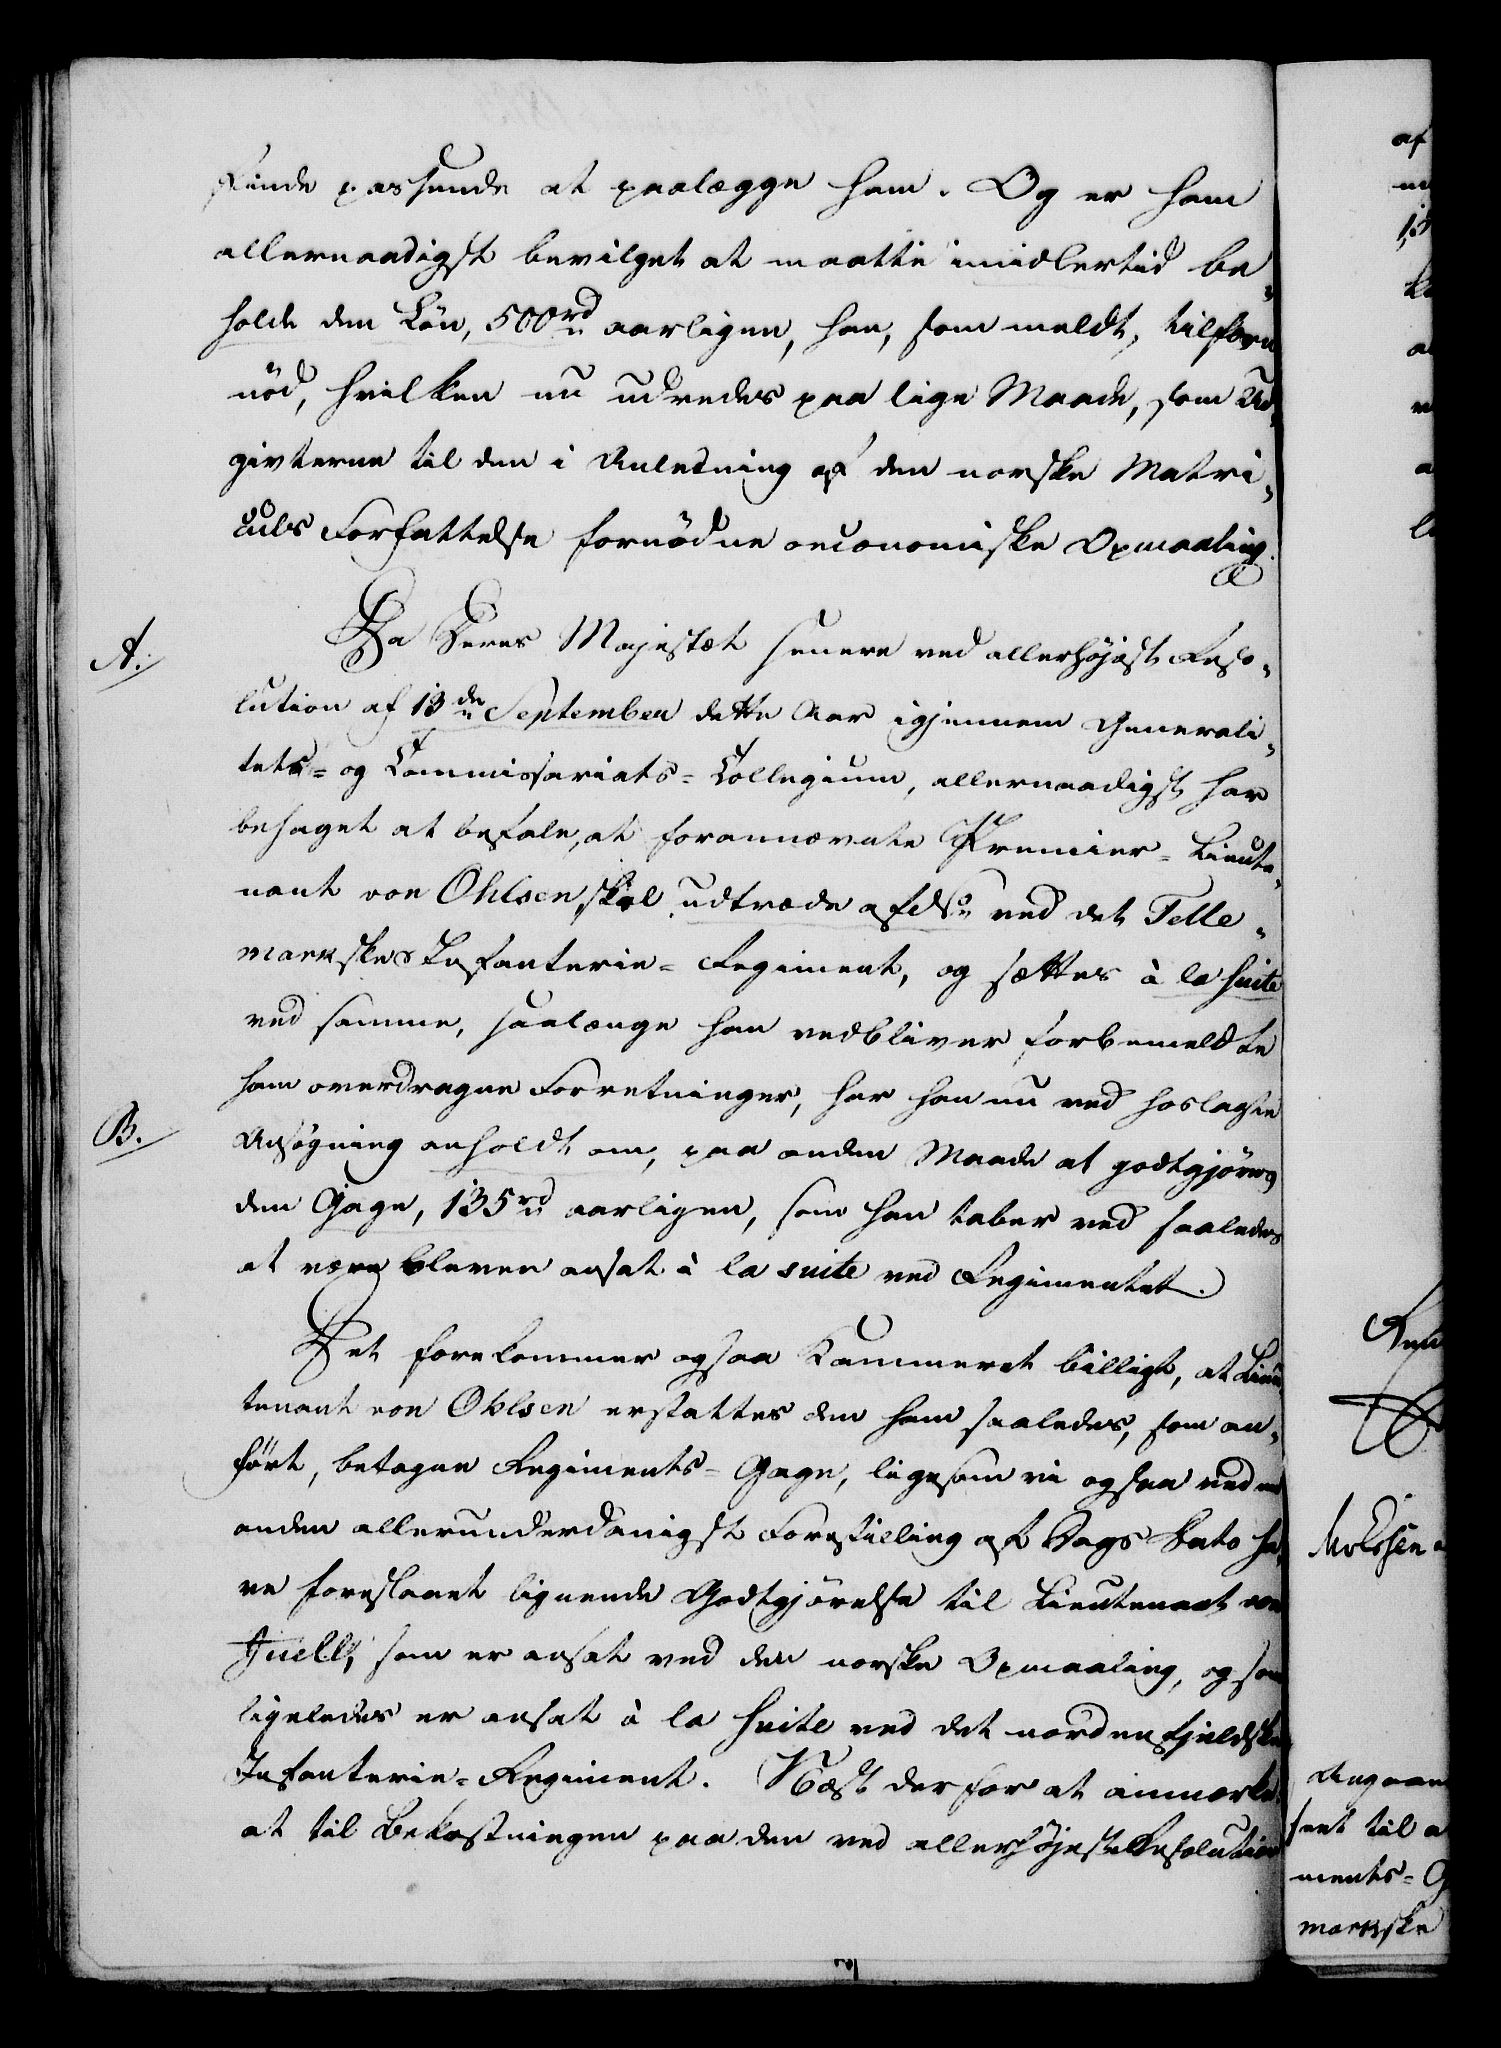 finde passende at paalægge ham. Og er ham
allernaadigst bevilget at maatte imidlertid be-
holde den Løn, 500rd aarligen, han, som meldt, tilforn
nød, hvilken nu udredes paa lige Maade, som Ud-
givterne til den i Anledning af den norske Matri-
culs Forfattelse fornødne oeconomiske Opmaaling.
A.
Da Deres Majestæt senere ved allerhøjest Reso-
lution af 13de September dette Aar igjennem Generali-
tets- og Commissariats-Collegium, allernaadigst har
behaget at befale, at forannævnte Premier-Lieute-
nant von Ohlsen skal udtræde af ved det Telle-
markske Infanterie-Regiment, og sættes à la suite
ved samme, saalænge han vedbliver forbemeldte
ham overdragne Forretninger, har han nu ved hoslagte
B.
Ansøgning anholdt om, paa anden Maade at godtgjøres
den Gage, 135rd aarligen, som han taber ved saaledes
at være bleven ansat à la suite ved Regimentet.
Det forekommer ogsaa Kammeret billigt, at Lieu-
tenant von Ohlsen erstattes den ham saaledes, som an-
ført, betagne Regiments-Gage, ligesom vi ogsaa ved en
anden allerunderdanigst Forestilling af Dags Dato ha-
ve foreslaaet lignende Godtgjørelse til Lieutenant von
Juell, som er ansat ved den norske Opmaaling, og som
ligeledes er ansat à la Suite ved det nordenfjeldske
Infanterie-Regiment. Næst derfor at anmærke
at til Bekostningen paa den ved allerhøjeste Resolution
af
Mölssen
Angaae
ments-G
markske